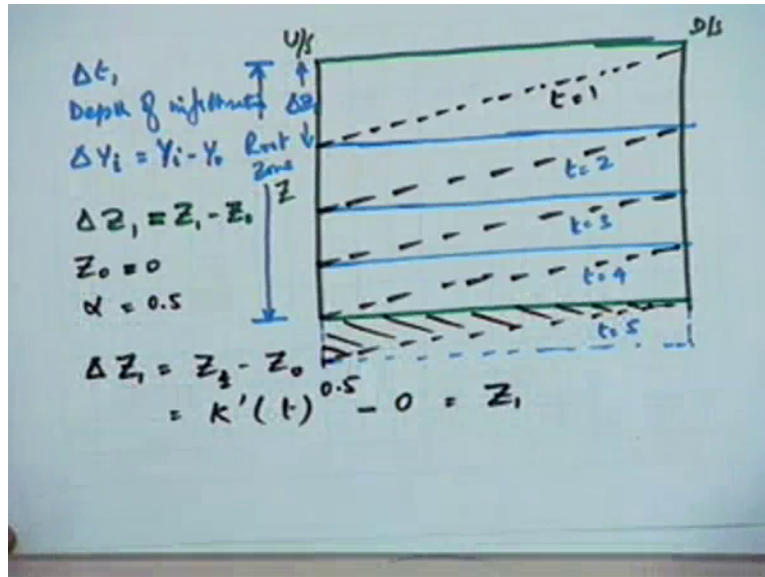 U/S
D/S
Δt₁
Depth of infiltration
ΔZ₁
ΔYᵢ = Yᵢ - Y₀
Root
Zone
Z
ΔZ₁ = Z₁ - Z₀
Z₀ = 0
α = 0.5
t=1
t=2
t=3
t=4
t=5
ΔZ₁ = Z₁ - Z₀
= K'(t)^0.5 - 0 = Z₁